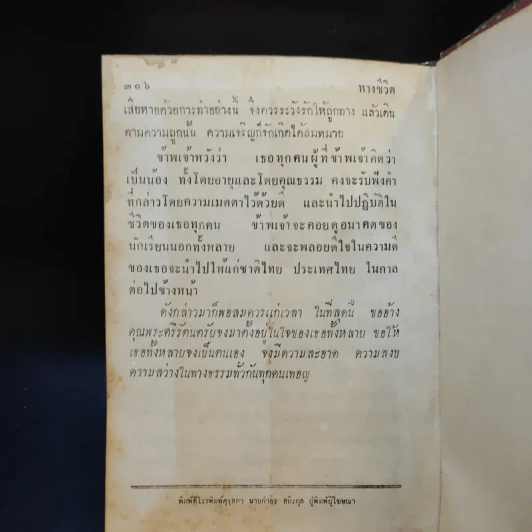 ๓๐๖ ทางชีวิต
เสียหายด้วยการทำอย่างนี้ จึงควรระวังรักให้ถูกทาง แล้วเดิน
ตามความถูกนั้น ความเจริญก็จักเกิดได้สมหมาย
ข้าพเจ้าหวังว่า เธอทุกคนผู้ที่ข้าพเจ้าคิดว่า
เป็นน้อง ทั้งโดยอายุและโดยคุณธรรม คงจะรับฟังคำ
ที่กล่าวโดยความเมตตาไว้ด้วยดี และนำไปปฏิบัติใน
ชีวิตของเธอทุกคน ข้าพเจ้าจะคอยดูอนาคตของ
นักเรียนนอกทั้งหลาย และจะพลอยดีใจในความดี
ของเธอจะนำไปให้แก่ชาติไทย ประเทศไทย ในกาล
ต่อไปข้างหน้า
ดังกล่าวมาก็พอสมควรแก่เวลา ในที่สุดนี้ ขออ้าง
คุณพระศรีรัตนตรัยจงมาตั้งอยู่ในใจของเธอทั้งหลาย ขอให้
เธอทั้งหลายจงเป็นตนเอง จงมีความสะอาด ความสงบ
ความสว่างในทางธรรมทั่วกันทุกคนเทอญ
พิมพ์ที่โรงพิมพ์คุรุสภา นายกำธร สถิรกุล ผู้พิมพ์ผู้โฆษณา